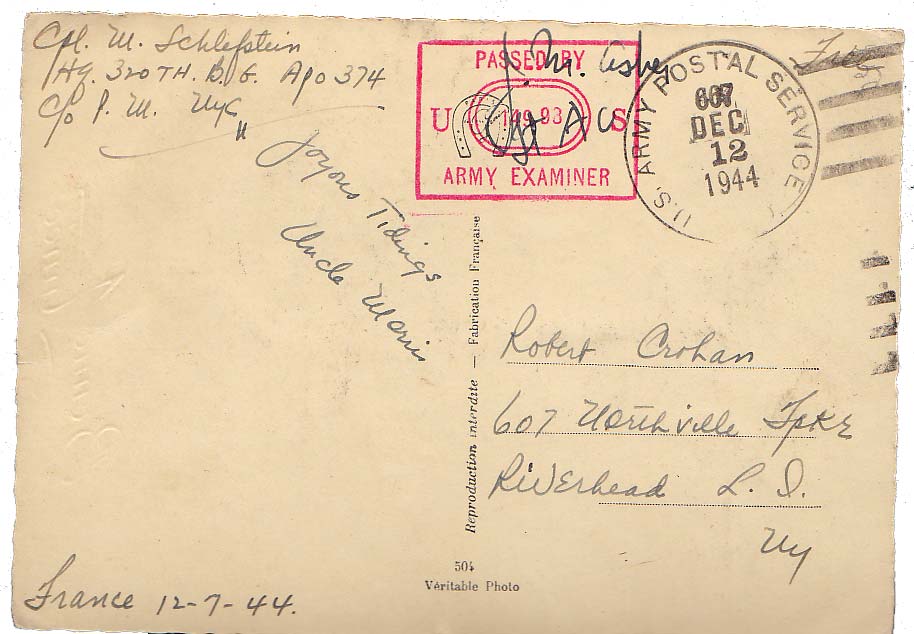 Cpl. M. Schlefstein
Hq. 320TH. B. G. APO 374
C/o P. M. NyC
"Joyous Tidings
Uncle Morris
PASSED BY
U 149 98 S
ARMY EXAMINER
U.S. ARMY POSTAL SERVICE
607
DEC
12
1944
Free
Reproduction interdite — Fabrication Française
Robert Crohan
607 Northville Tpke
Riverhead L. I.
Ny
504
Véritable Photo
France 12-7-44.